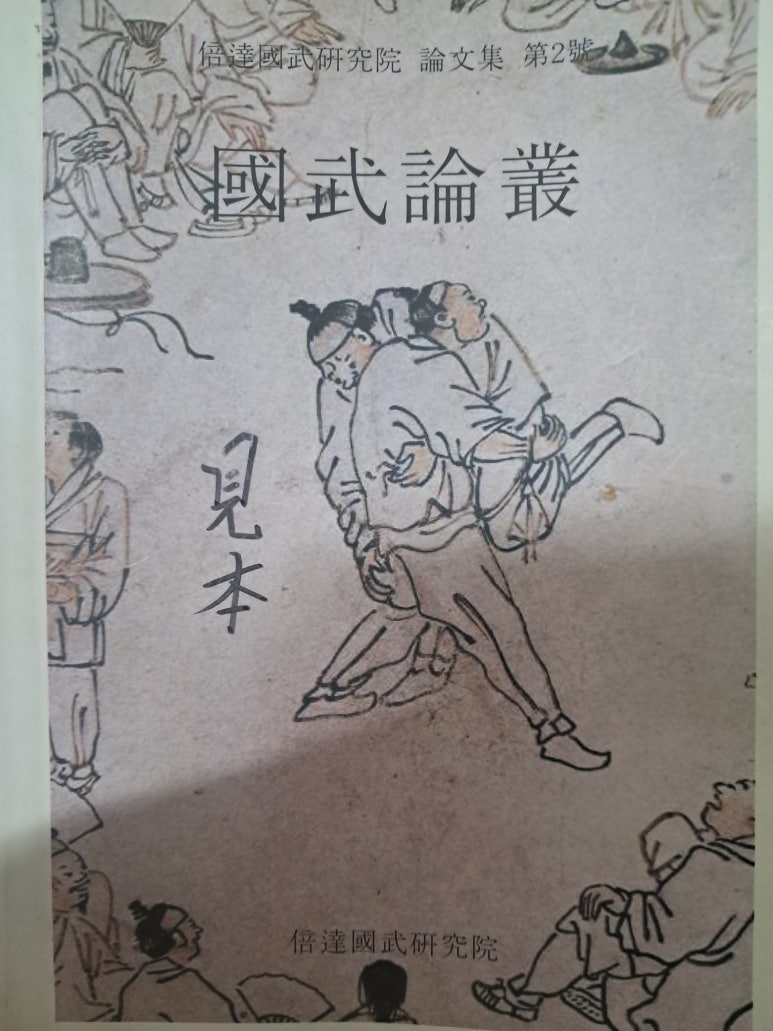 倍達國武硏究院 論文集 第2號
國武論叢
見本
倍達國武硏究院